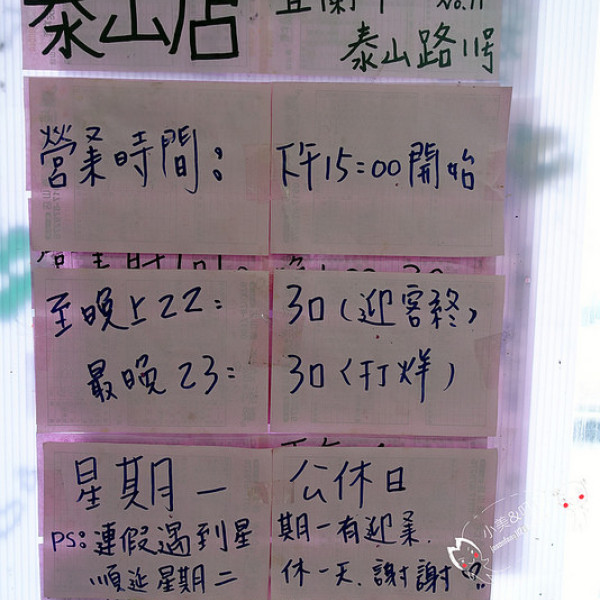 泰山店
泰山路11號
營業時間： 下午15:00開始
至晚上22:30（迎客終）
最晚23:30（打烊）
星期一 公休日
PS:連假遇到星期一有迎業.
順延星期二休一天.謝謝